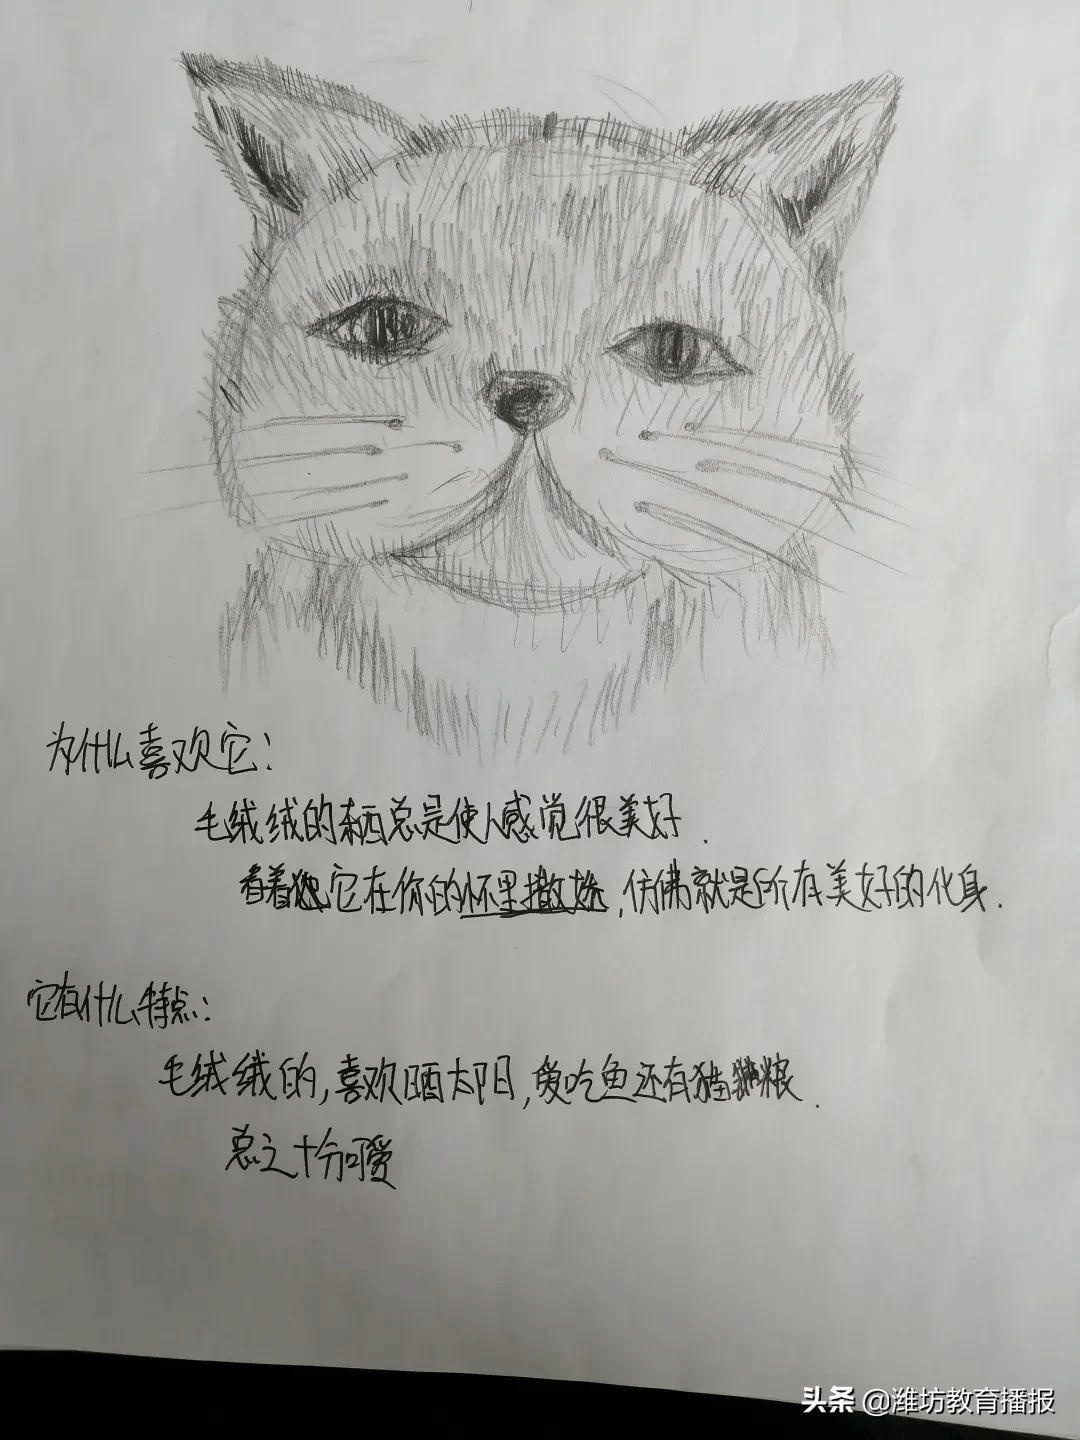 为什么喜欢它:
毛绒绒的东西总是使人感觉很美好.
看着它在你的怀里撒娇,仿佛就是所有美好的化身.
它有什么特点:
毛绒绒的,喜欢晒太阳,爱吃鱼还有猫粮.
总之十分可爱
头条 @潍坊教育播报